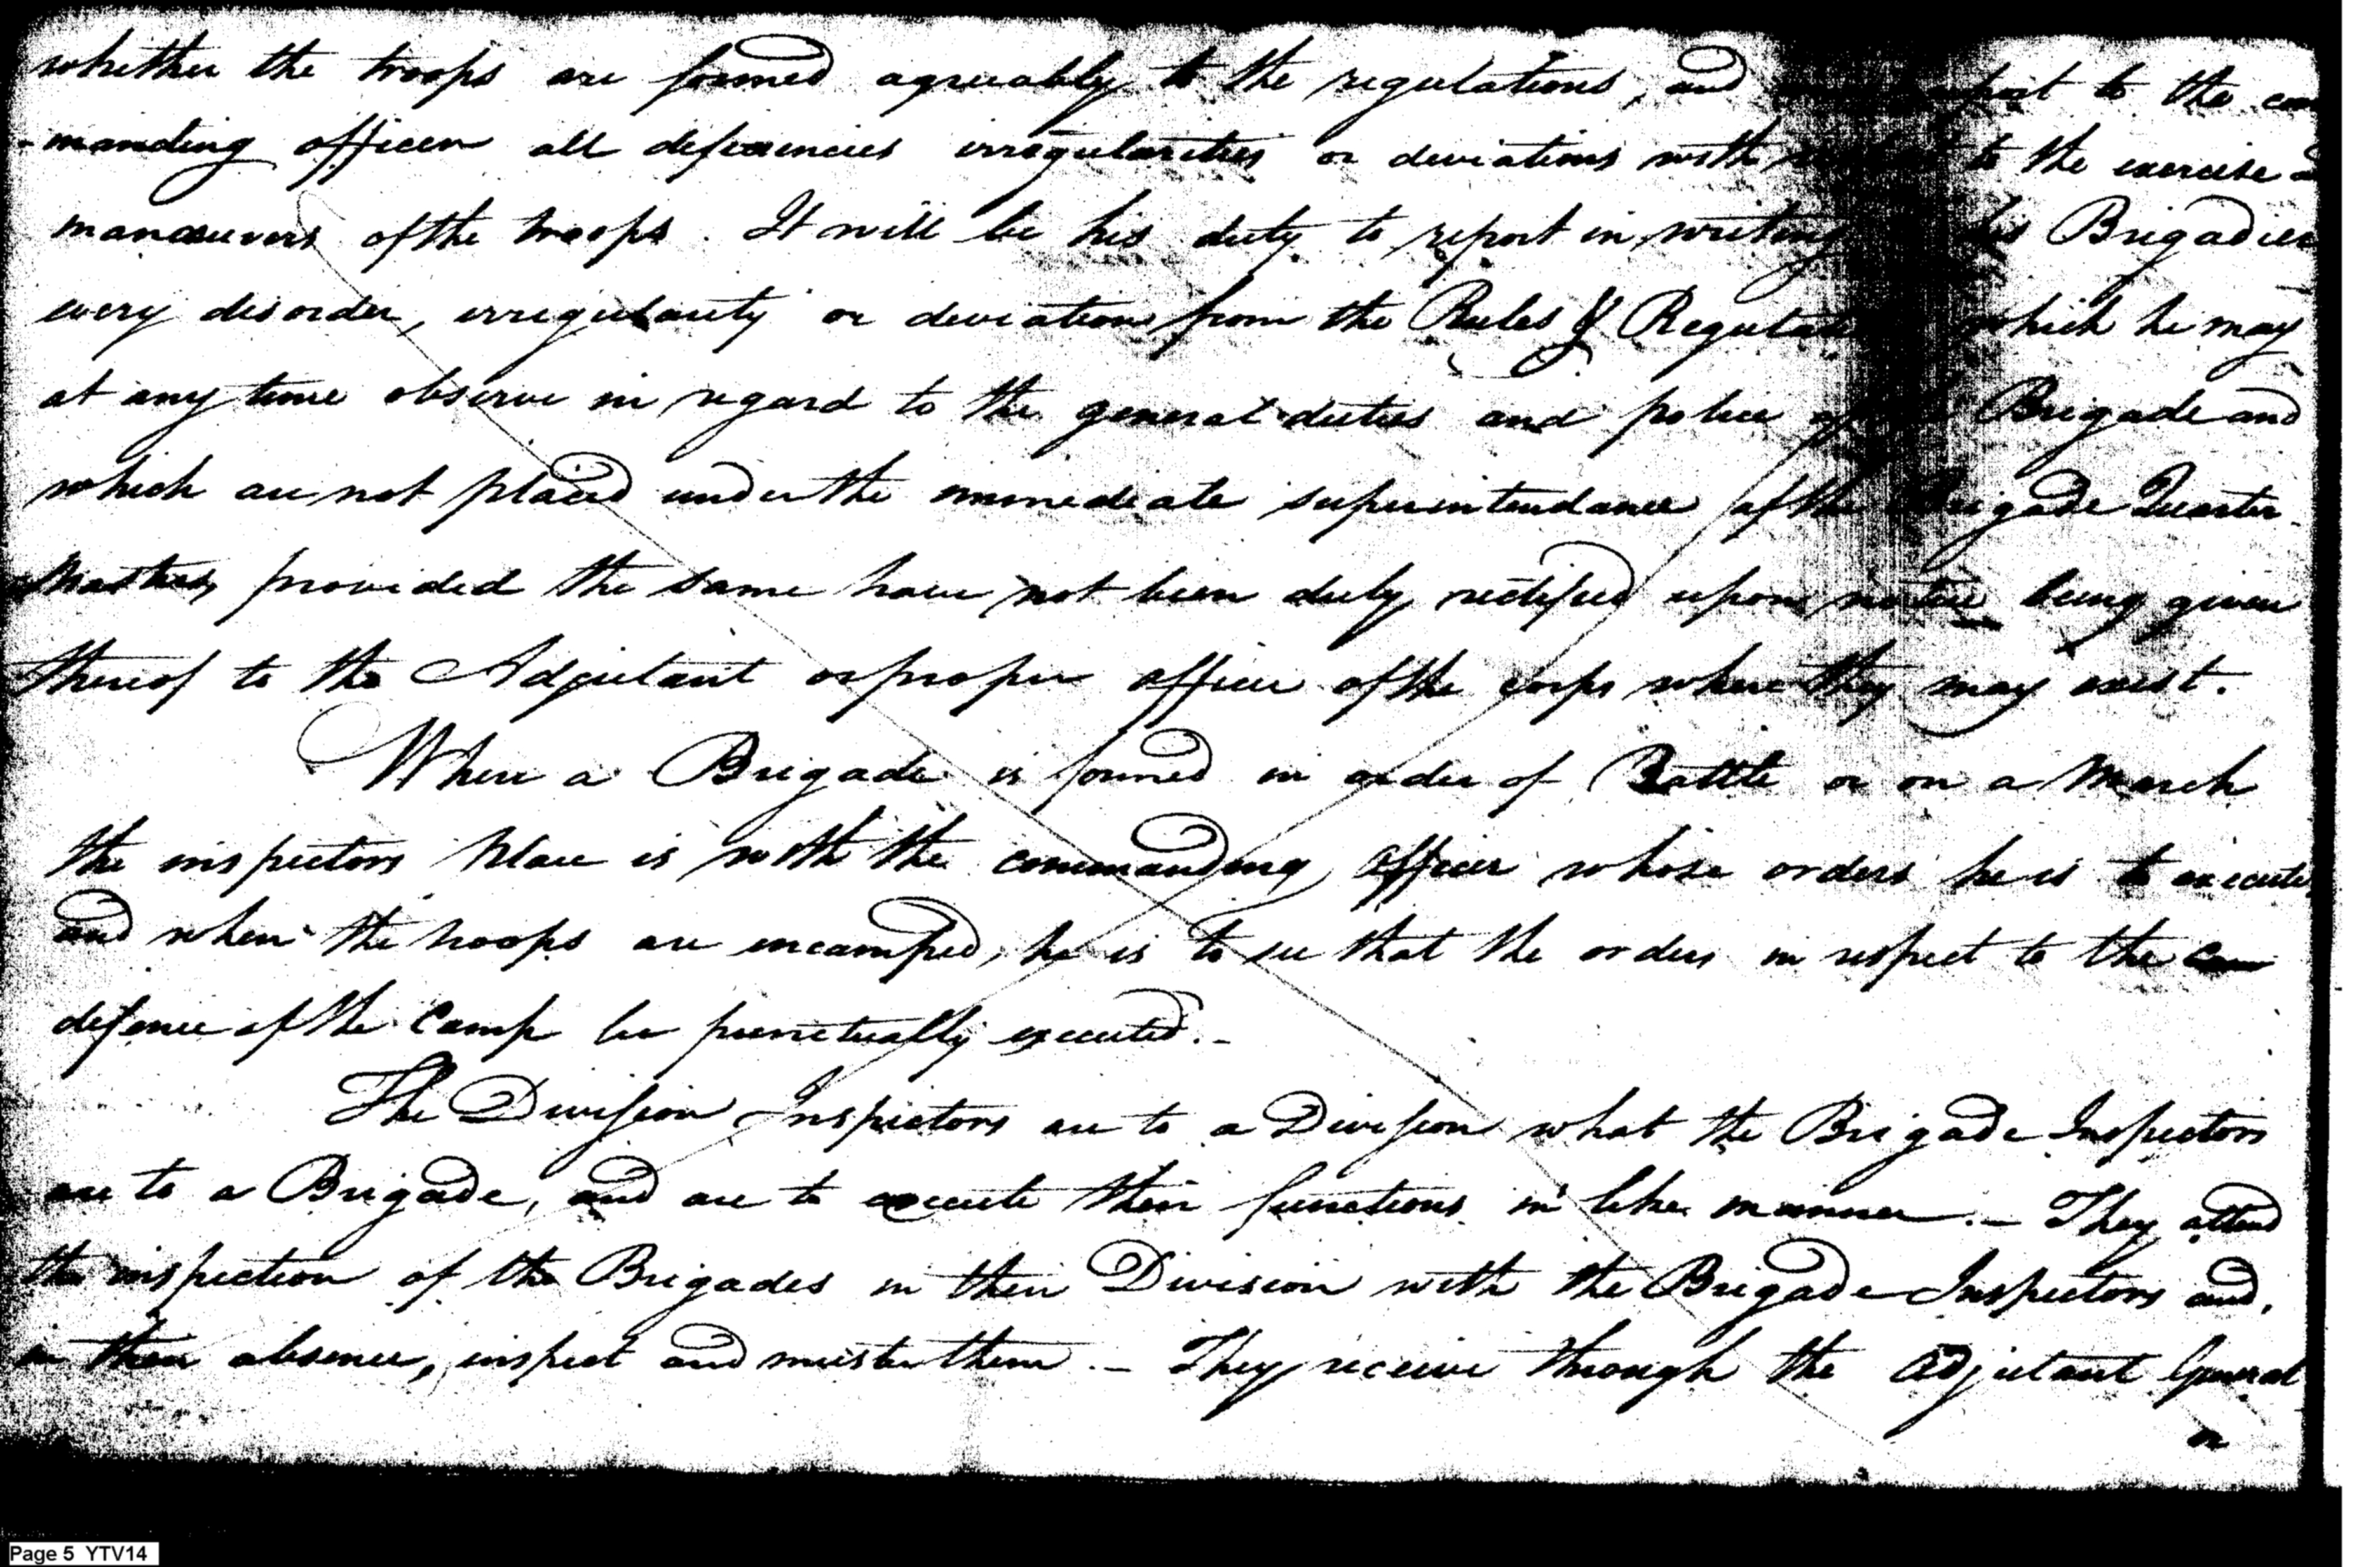 whether the troops are formed agreeably to the regulations, and report to the com
-manding officer all deficiencies irregularities or deviations with respect to the exercise &
manœuvers of the troops. It will be his duty to report in writing to his Brigadier
every disorder, irregularity or deviation from the Rules & Regulations which he may
at any time observe in regard to the general duties and police of the Brigade and
which are not placed under the immediate superintendance of the Brigade Quarter
Masters, provided the same have not been duly rectified upon notice being given
thereof to the Adjutant or proper officer of the corps where they may exist.
When a Brigade is formed in order of Battle or on a March
the inspectors place is with the commanding officer whose orders he is to execute
and when the troops are encamped, he is to see that the orders in respect to the
defence of the Camp be punctually executed.-
The Division Inspectors are to a Division what the Brigade Inspectors
are to a Brigade, and are to execute their functions in like manner.- They attend
the inspection of the Brigades in their Division with the Brigade Inspectors and,
in their absence, inspect and muster them.- They receive through the Adjutant General
or
Page 5 YTV14